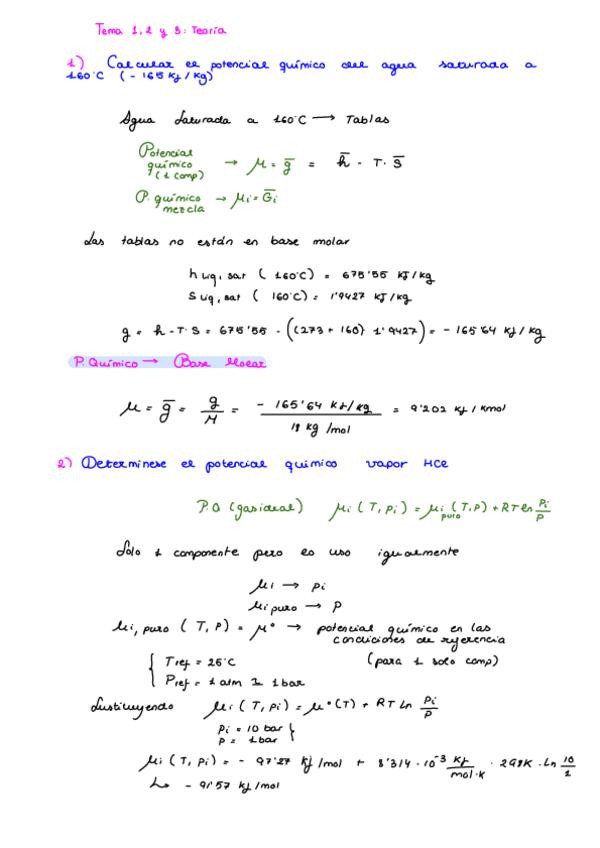 Tema 1, 2 y 3: Teoría
1) Calcular el potencial químico del agua saturada a
160°C (-165 KJ/Kg)
Agua saturada a 160°C → Tablas
Potencial
químico
(1 comp) → μ = g̅ = h̅ - T · s̅
P. químico
mezcla → μi = G̅i
Las tablas no están en base molar
h liq, sat (160°C) = 675'55 KJ/kg
s liq, sat (160°C) = 1'9427 KJ/kg
g = h - T · S = 675'55 - ((273 + 160) 1'9427) = - 165'64 KJ/kg
P. Químico → Base Molar
μ = g̅ = g/M = - 165'64 KJ/kg / 18 kg/mol = 9'202 KJ/Kmol
2) Determinese el potencial quimico vapor HCl
P.Q (gas ideal) μi (T, Pi) = μi puro (T, P) + RT ln Pi/P
Solo 1 componente pero lo uso igualmente
μi → Pi
μi puro → P
μi, puro (T, P) = μ° → potencial químico en las
condiciones de referencia
(para 1 solo comp)
Tref = 25°C
Pref = 1 atm ≈ 1 bar
Sustituyendo μi (T, Pi) = μ° (T) + RT Ln Pi/P
Pi = 10 bar
P = 1 bar
μi (T, Pi) = - 97'27 KJ/mol + 8'314 · 10⁻³ KJ/mol·K · 298K · Ln 10/1
↳ - 91'57 KJ/mol